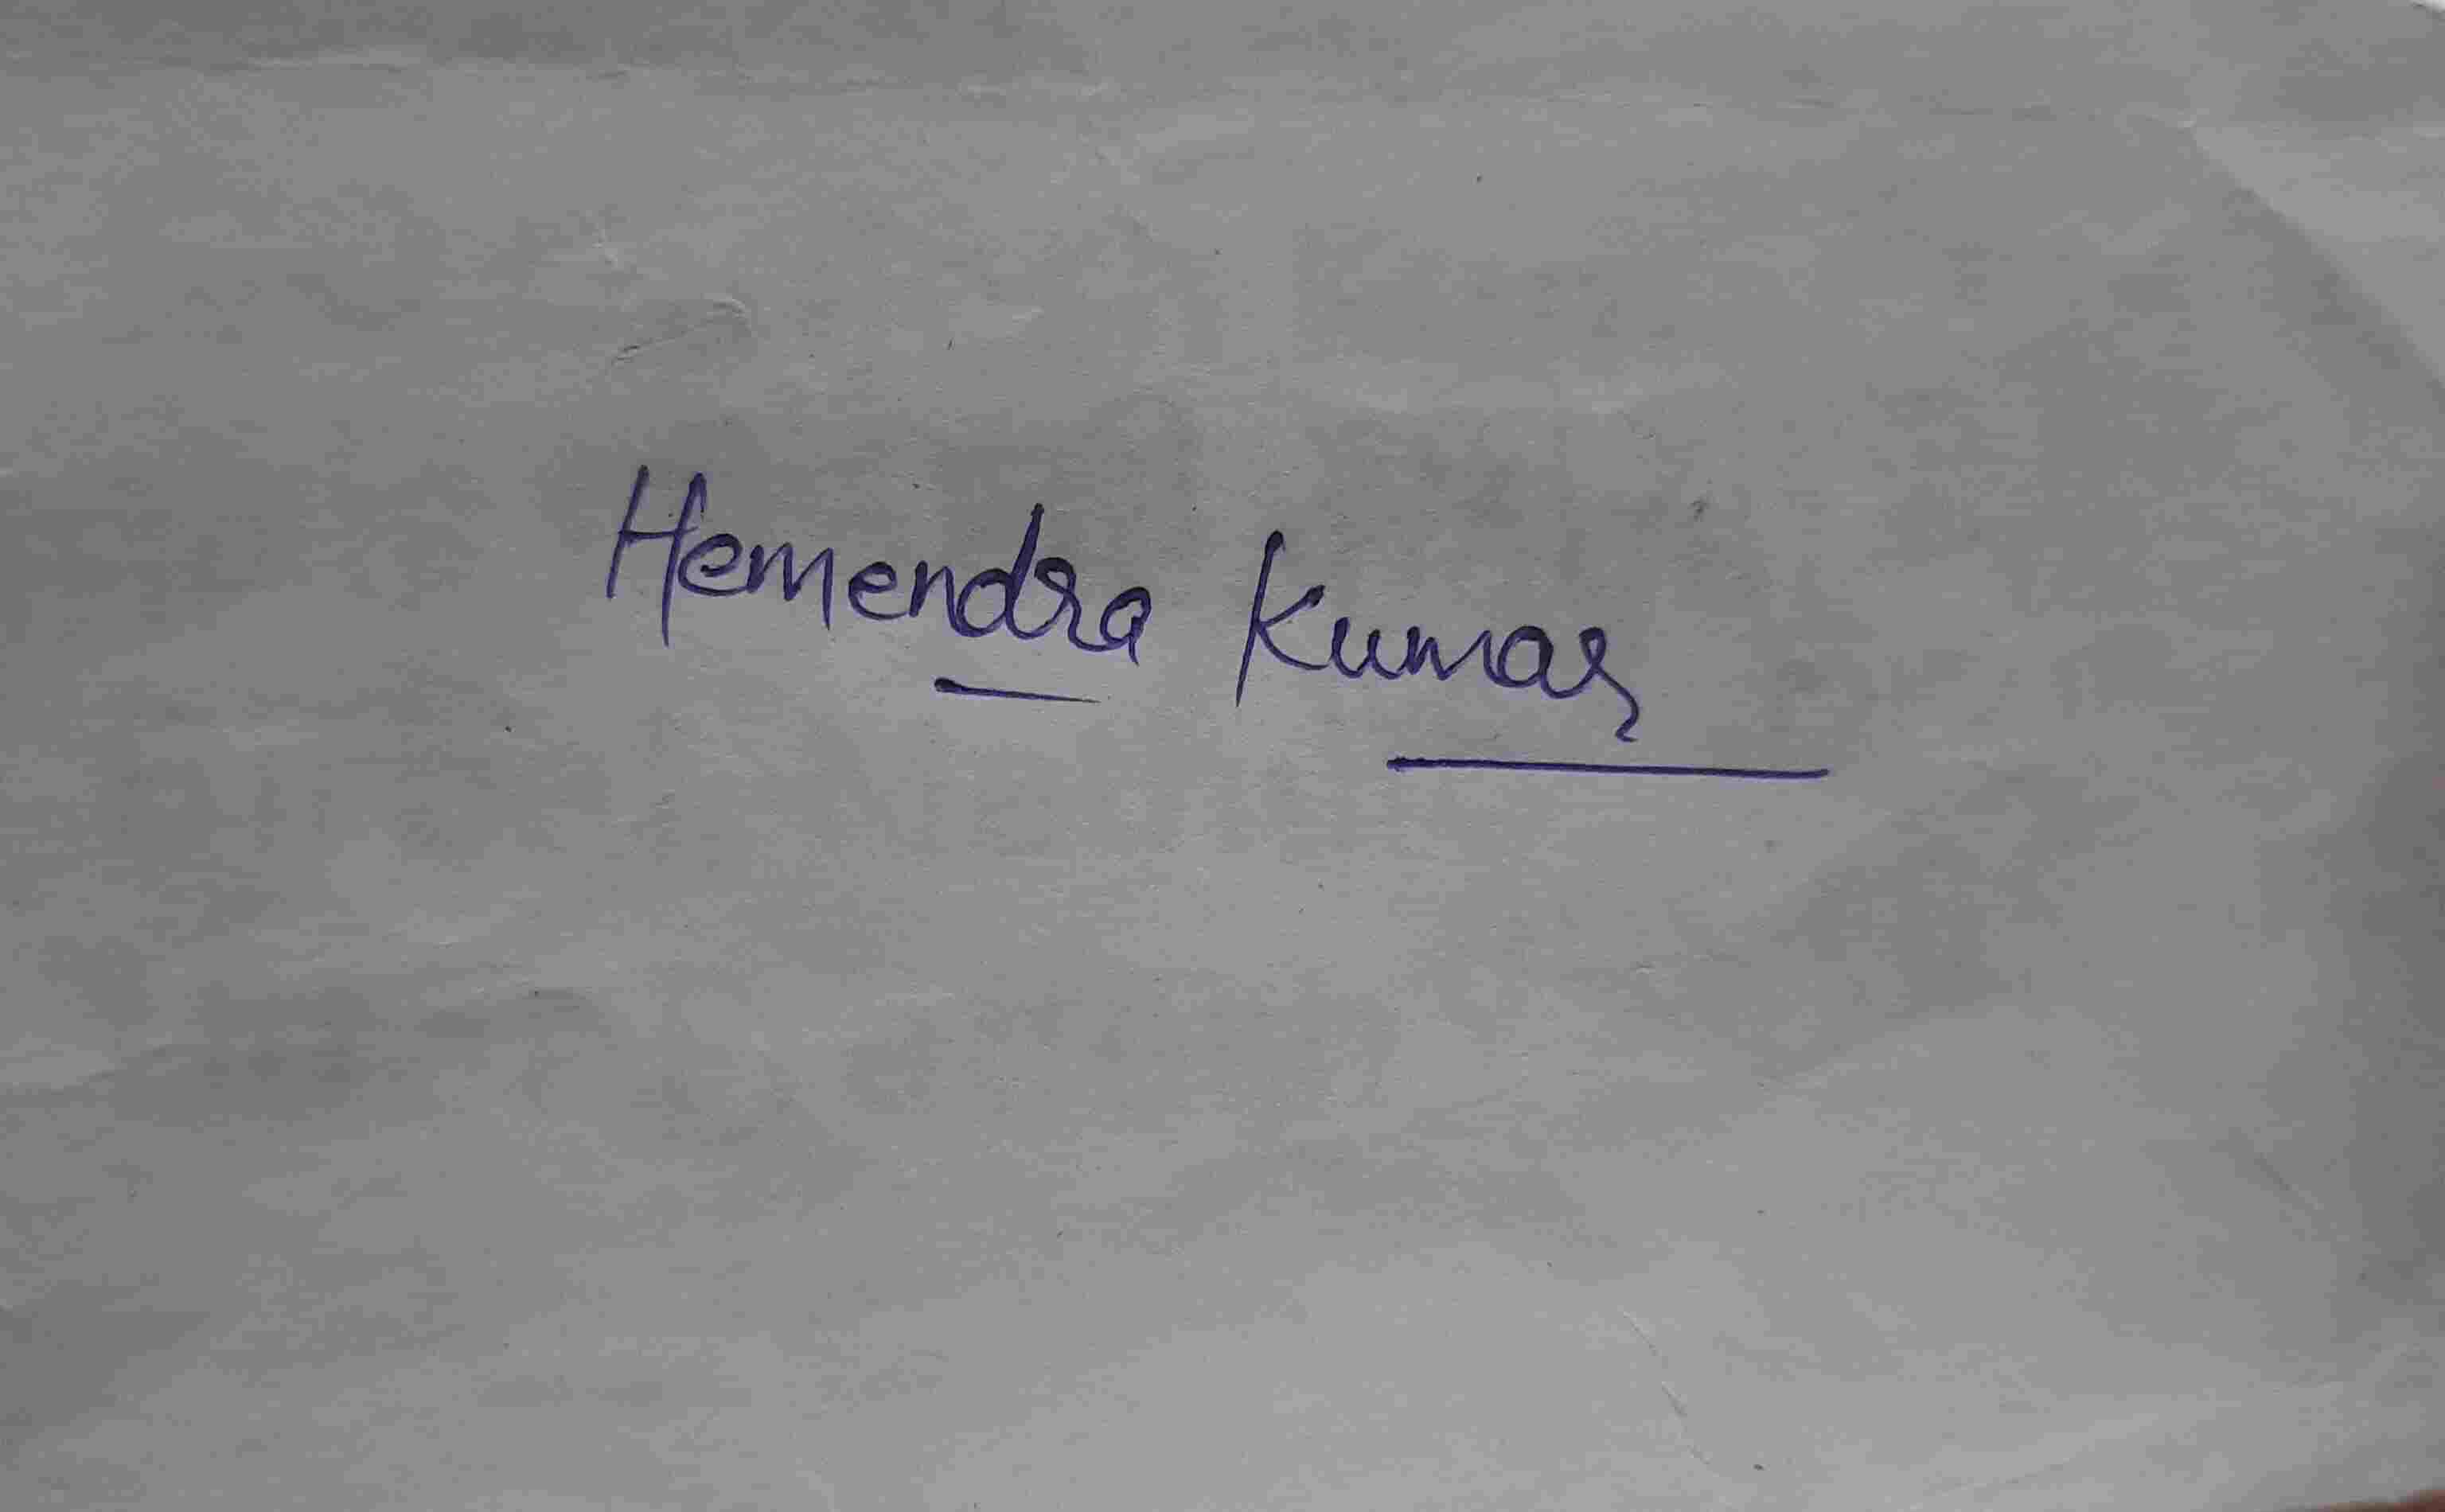 Hemendra Kumar